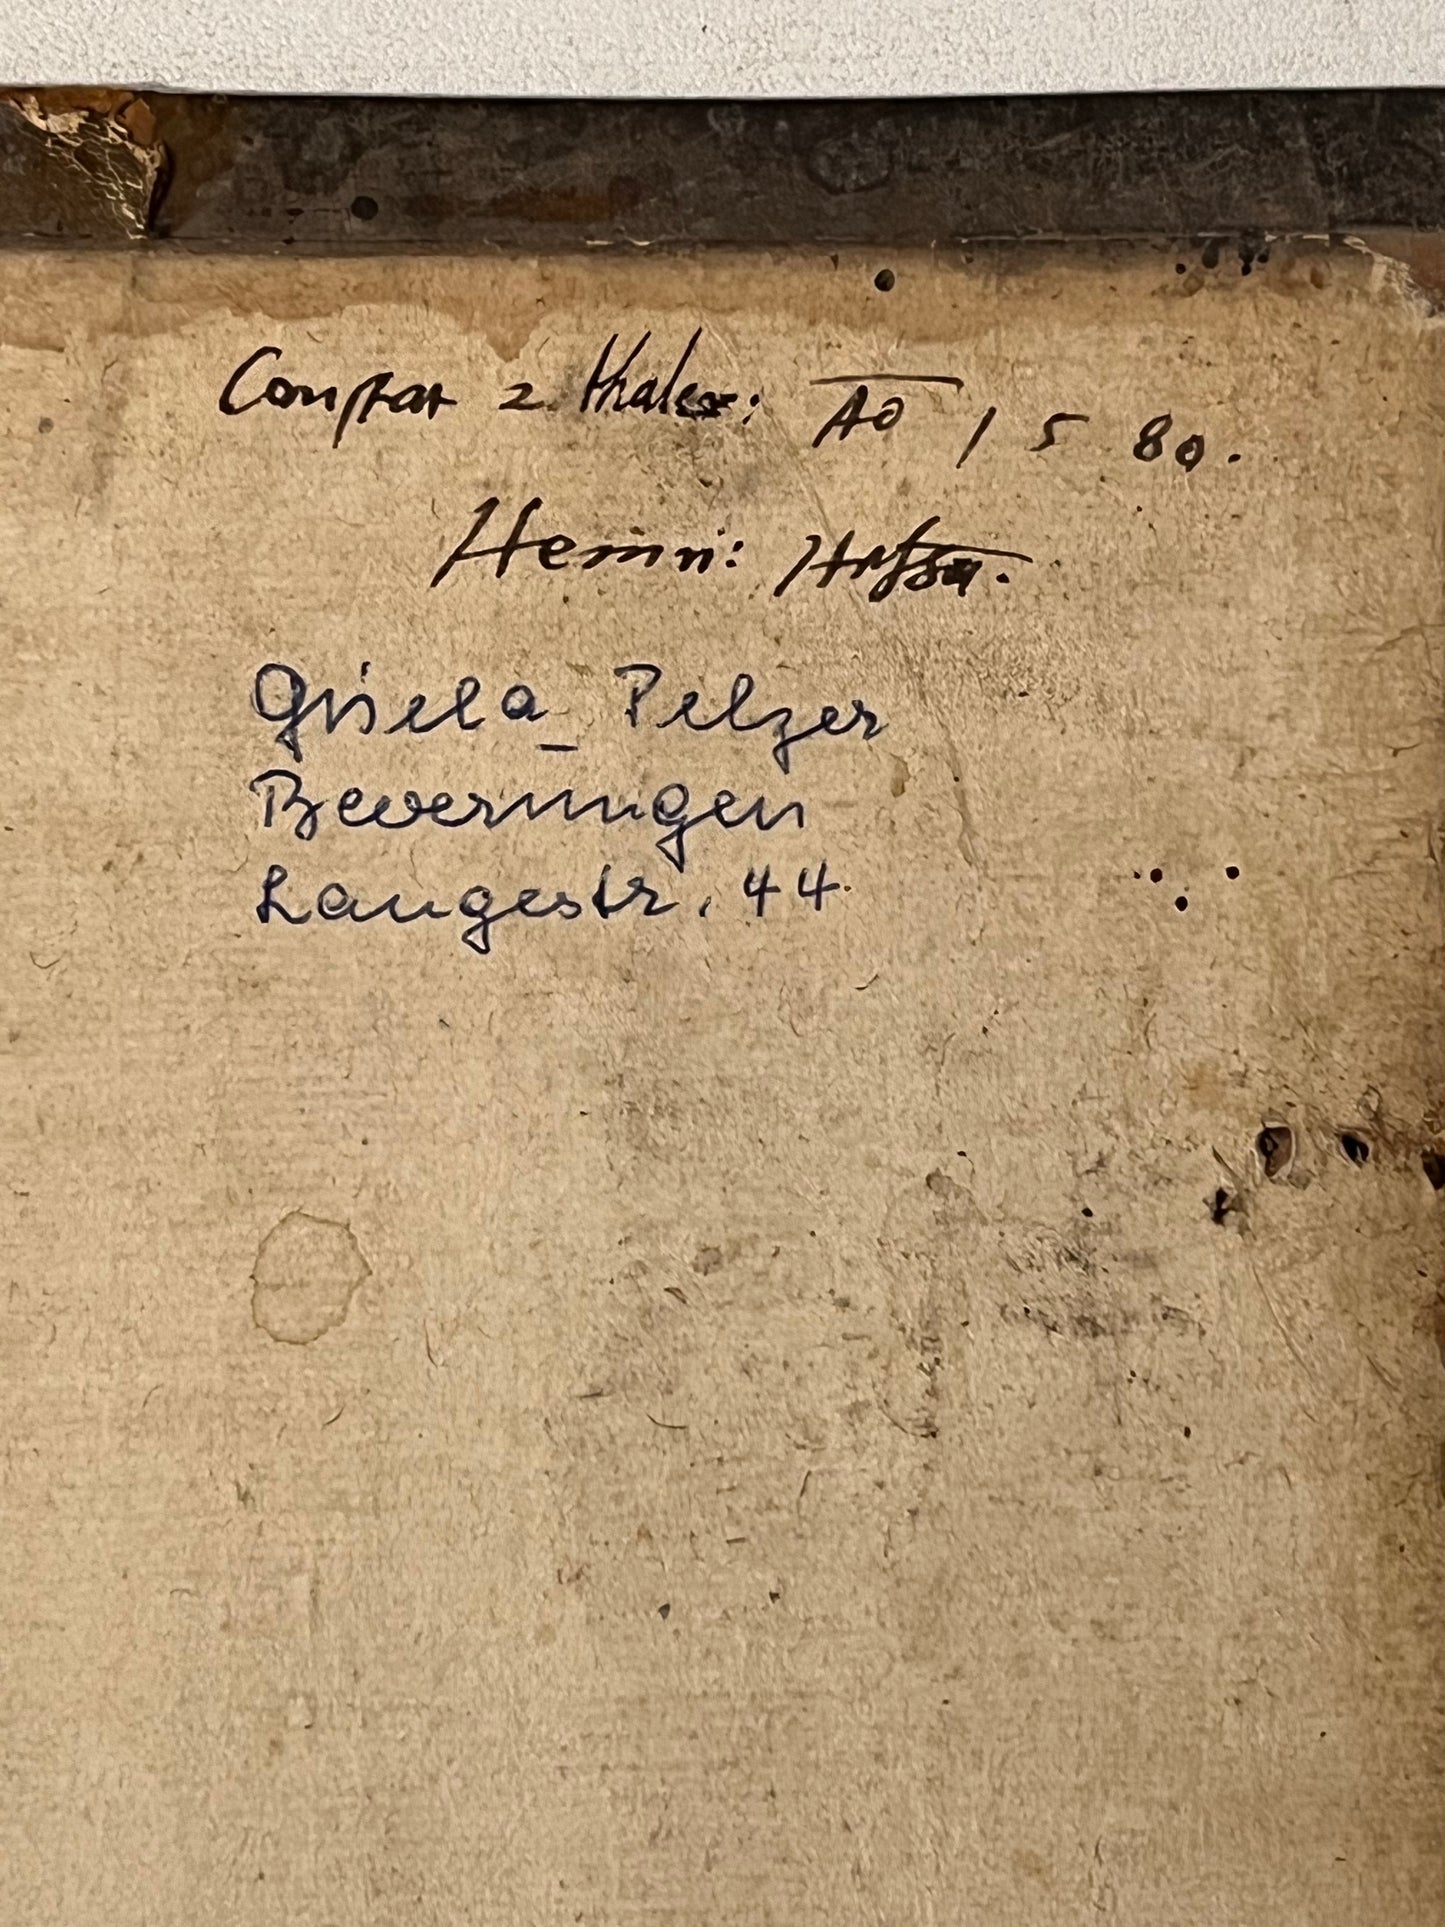 Constat 2 thaler: AO 1580.
Heinri:
Gisela_Pelzer
Beverungen
Langestr. 44.